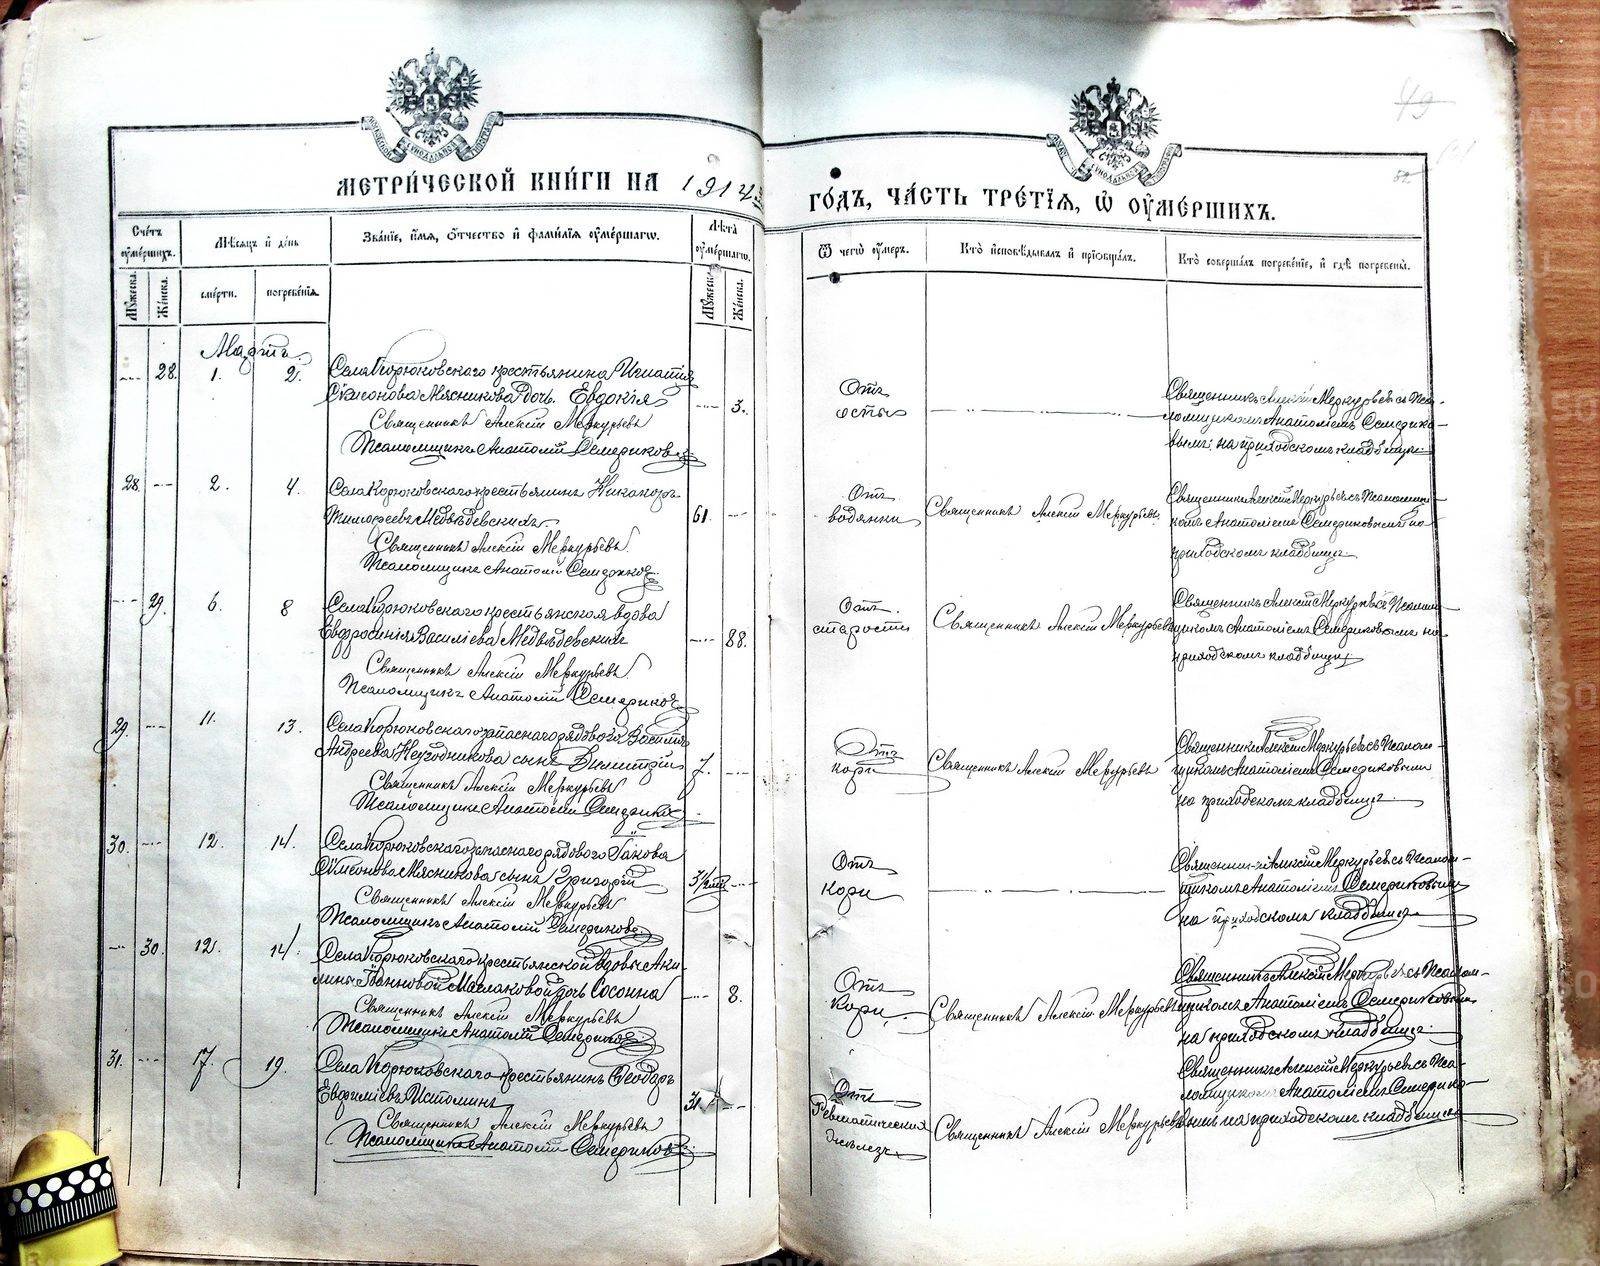 МЕТРИЧЕСКОЙ КНИГИ НА 1914 ГОДЪ, ЧАСТЬ ТРЕТІЯ, Ѿ ОУМЕРШИХЪ.
Счетъ оумершихъ.
Мужеска.
Женска.
Мѣсяцъ и день
смерти.
погребенія.
Званіе, имя, отчество и фамилія оумершагѡ.
Лѣта оумершагѡ.
Мужеска.
Женска.
Ѿ чегѡ оумеръ.
Кто исповѣдывалъ и пріобщалъ.
Кто совершалъ погребеніе, и гдѣ погребены.
Мартъ.
28. 1. 2.
Села Корюковскаго крестьянина Игнатія
Сѷмеонова Мясникова дочь Евдокія
3.
Священникъ Алексій Меркурьевъ
Псаломщикъ Анатолій Семериковъ
Отъ
оспы
Священникъ Алексій Меркурьевъ съ Пса-
ломщикомъ Анатоліемъ Семерико-
вымъ на приходскомъ кладбищѣ.
28. 2. 4.
Села Корюковскаго крестьянинъ Никаноръ
Тимофеевъ Медвѣдевскихъ
61.
Священникъ Алексій Меркурьевъ
Псаломщикъ Анатолій Семериковъ
Отъ
водянки
Священникъ Алексій Меркурьевъ
Священникъ Алексій Меркурьевъ съ Псаломщи-
комъ Анатоліемъ Семериковымъ на
приходскомъ кладбищѣ
29. 6. 8
Села Корюковскаго крестьянская вдова
Евфросинія Василіева Медвѣдевскихъ
88.
Священникъ Алексій Меркурьевъ
Псаломщикъ Анатолій Семериковъ
Отъ
старости
Священникъ Алексій Меркурьевъ
Священникъ Алексій Меркурьевъ съ Псалом-
щикомъ Анатоліемъ Семериковымъ на
приходскомъ кладбищѣ
29. 11. 13.
Села Корюковскаго запаснаго рядового Василія
Андреева Негодникова сынъ Димитрій
7.
Священникъ Алексій Меркурьевъ
Псаломщикъ Анатолій Семериковъ
Отъ
кори
Священникъ Алексій Меркурьевъ
Священникъ Алексій Меркурьевъ съ Псалом-
щикомъ Анатоліемъ Семериковымъ
на приходскомъ кладбищѣ
30. 12. 14.
Села Корюковскаго запаснаго рядового Іакова
Сѷмеонова Мясникова сынъ Григорій
Священникъ Алексій Меркурьевъ
Псаломщикъ Анатолій Семериковъ
Отъ
кори
Священникъ Алексій Меркурьевъ съ Псалом-
щикомъ Анатоліемъ Семериковымъ
на приходскомъ кладбищѣ
30. 12. 14.
Села Корюковскаго крестьянской вдовы Аки-
лины Іоанновой Маслаковой дочь Сосонна
8.
Священникъ Алексій Меркурьевъ
Псаломщикъ Анатолій Семериковъ
Отъ
кори
Священникъ Алексій Меркурьевъ
Священникъ Алексій Меркурьевъ съ Псалом-
щикомъ Анатоліемъ Семериковымъ
на приходскомъ кладбищѣ
31. 17. 19.
Села Корюковскаго крестьянинъ Ѳеодоръ
Евфиміевъ Истоминъ
31
Священникъ Алексій Меркурьевъ
Псаломщикъ Анатолій Семериковъ
Отъ
Священникъ Алексій Меркурьевъ
Священникъ Алексій Меркурьевъ съ Пса-
ломщикомъ Анатоліемъ Семерико-
вымъ на приходскомъ кладбищѣ